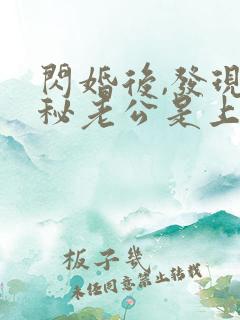 閃婚後,發現
秘老公是上
板子幾
未任同意禁止轉載